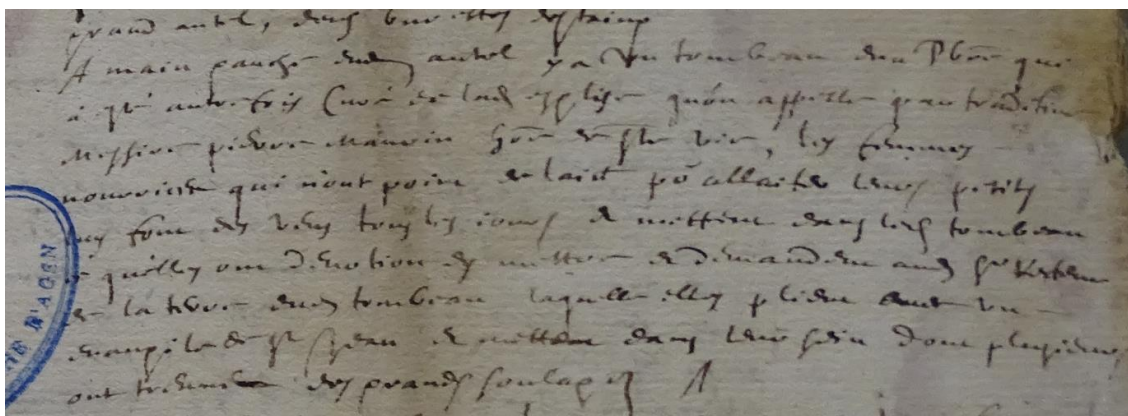 grand autel, deux burettes destaing
A main gauche dud autel y a un tombeau dun pbre qui
a esté autrefois Curé de lad esglise quon appelle par tradition
Messire pierre Mauvin home de ste vie, les femmes
nourrices qui nont poinct de laict po allaiter leurs petits
luy font des veus tous les jours et mettent dans led tombeau
ce quelles ont devotion dy mettre et demandent aud Sr
de la terre dud tombeau laquelle elles plient avec un
evangile de st Jean et mettent dans leur sein dont plusieurs
ont des grands soulagem
D'AGEN